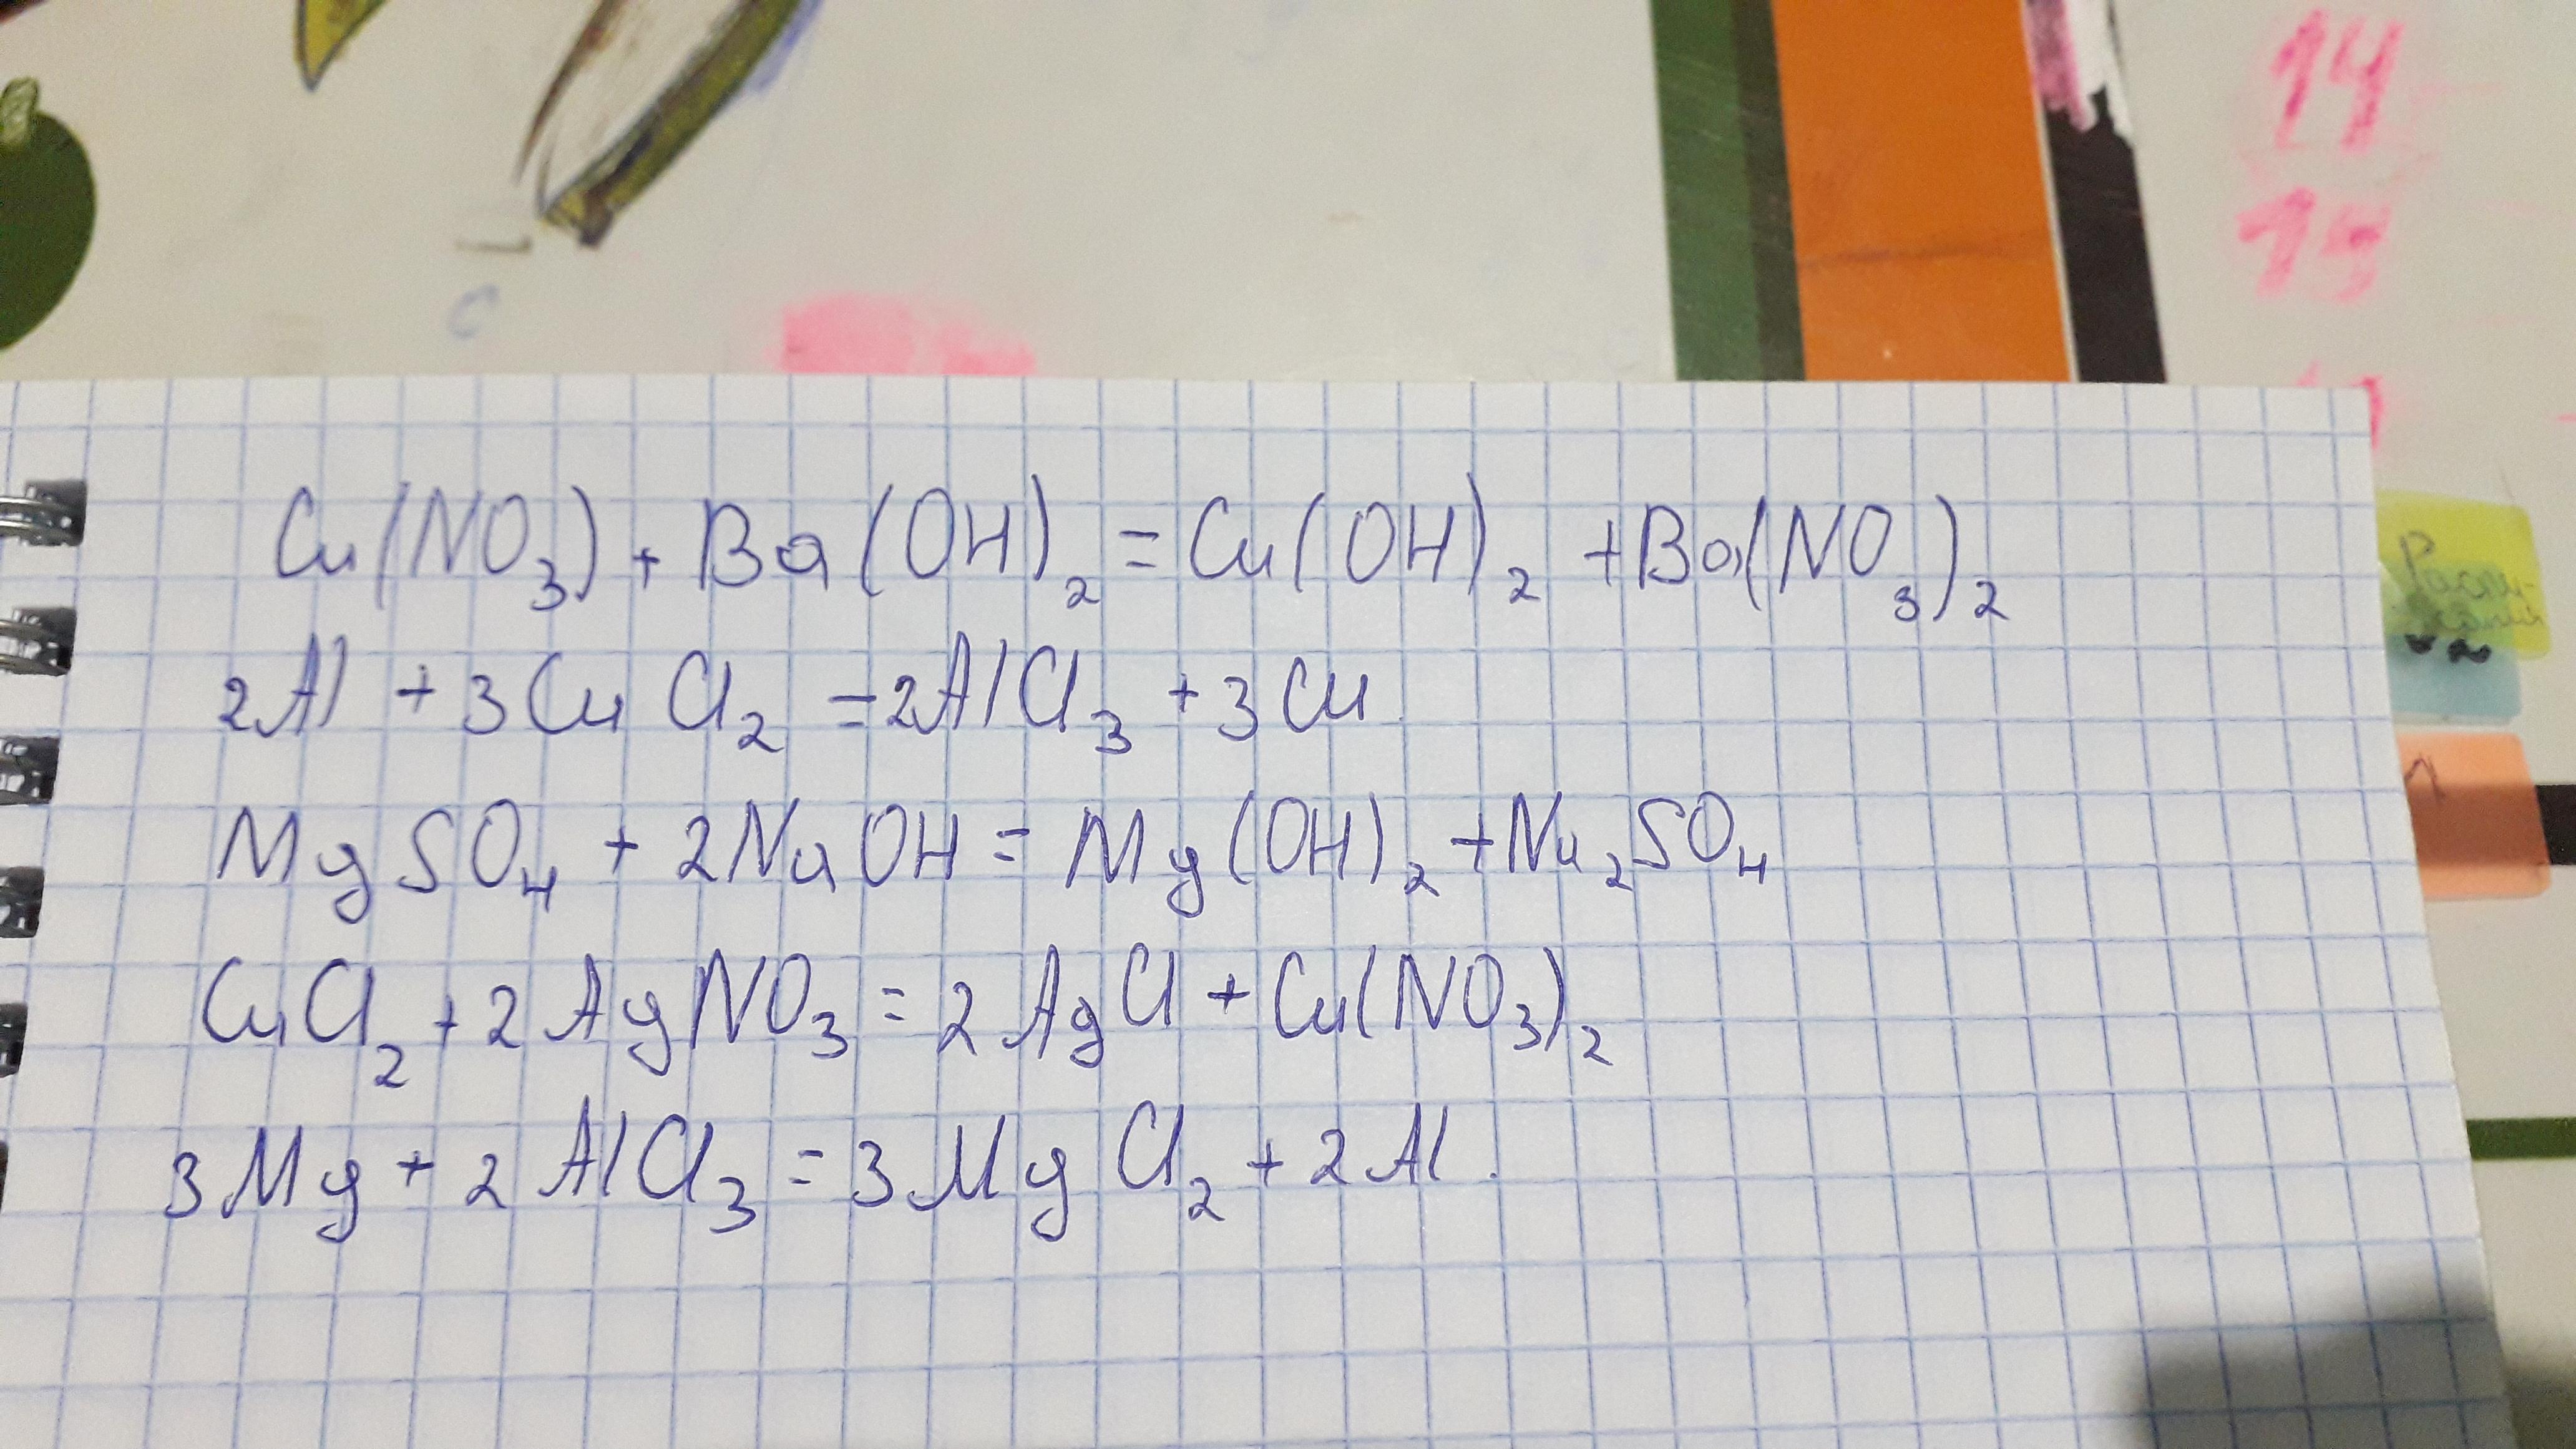 14
15
Cu(NO₃) + Ba(OH)₂ = Cu(OH)₂ + Ba(NO₃)₂
2Al + 3CuCl₂ = 2AlCl₃ + 3Cu
MgSO₄ + 2NaOH = Mg(OH)₂ + Na₂SO₄
CuCl₂ + 2AgNO₃ = 2AgCl + Cu(NO₃)₂
3Mg + 2AlCl₃ = 3MgCl₂ + 2Al.